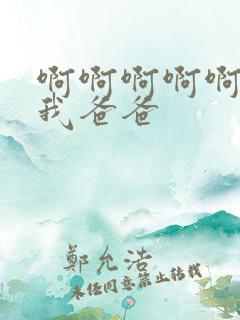 啊啊啊啊啊
我爸爸
鄭允浩
未經同意禁止轉載